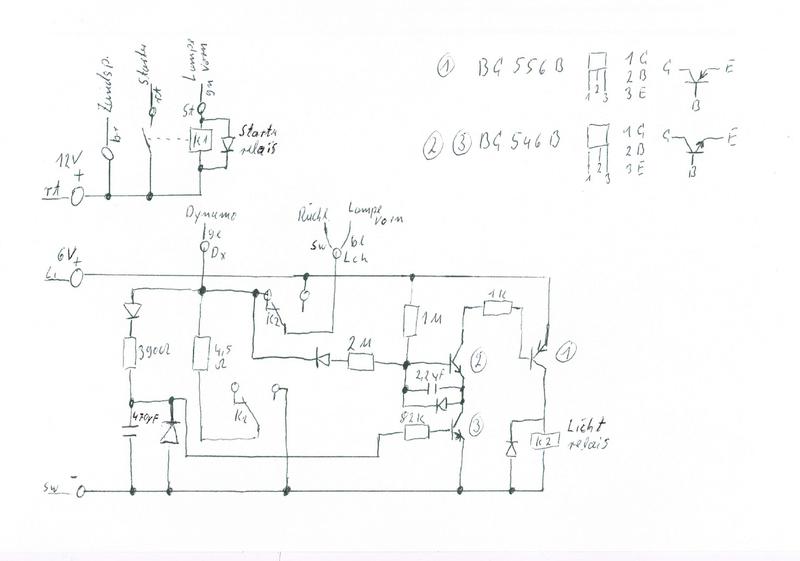 Zündsp.
br
Starter
rt
Lampe vorn
gn
St
K1
Start
relais
12V
+
rt
① BC 556 B
1 C
2 B
3 E
1 2 3
C E
B
② ③ BC 546 B
1 C
2 B
3 E
1 2 3
C E
B
Dynamo
ge
Dx
Rückl
Lampe vorn
sw
bl
Lch
6V+
Li
K2
1K
1M
①
390Ω
4,5
Ω
2M
②
2,2µF
470µF
K2
82K
③
K2
Licht
relais
sw -